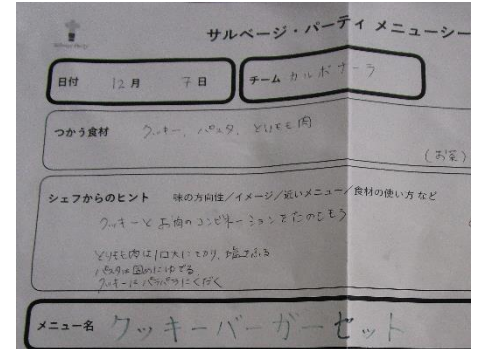 サルベージ・パーティ メニューシー
日付 12月 7日 チーム カルボナーラ
つかう食材 クッキー、パスタ、とりもも肉
(お菜)
シェフからのヒント 味の方向性/イメージ/近いメニュー/食材の使い方 など
クッキーとお肉のコンビネーションをたのしもう
とりもも肉は1口大にきり、塩をふる
パスタは固めにゆでる
クッキーはバラバラにくだく
メニュー名 クッキーバーガーセット